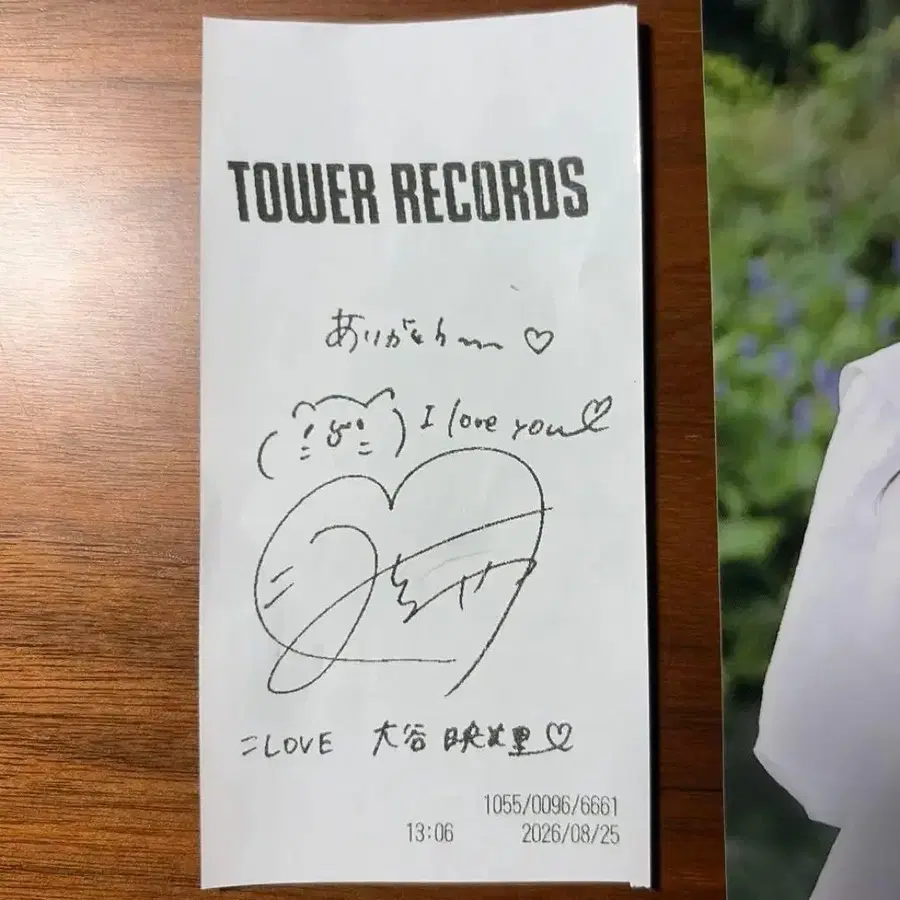 TOWER RECORDS
ありがとう〜♡
I love you♡
=LOVE 大谷映美里♡
1055/0096/6661
13:06 2026/08/25